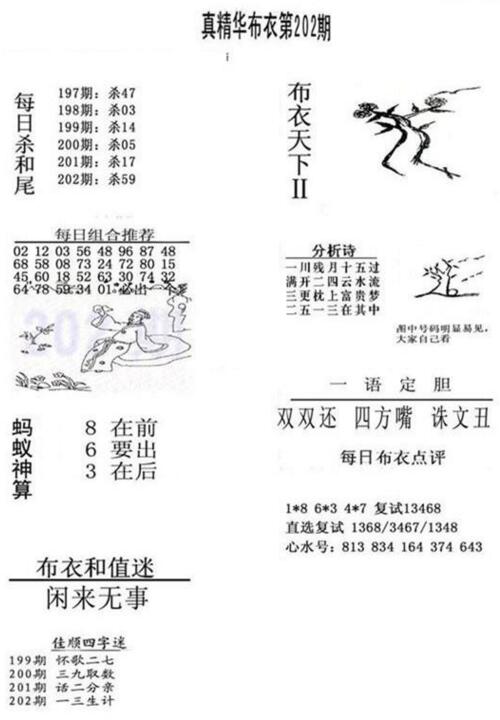 真精华布衣第202期
每日杀和尾
197期：杀47
198期：杀03
199期：杀14
200期：杀05
201期：杀17
202期：杀59
布衣天下II
每日组合推荐
02 12 03 56 48 96 87 48
68 58 08 73 24 72 80 15
45 60 18 52 63 30 74 32
64 78 59 34 01 必出一个
分析诗
一川残月十五过
满开二四云水流
三更枕上富贵梦
二五一三在其中
图中号码明显易见，
大家自己看
一语定胆
双双还 四方嘴 诛文丑
蚂蚁神算
8 在前
6 要出
3 在后
每日布衣点评
1*8 6*3 4*7 复试13468
直选复试 1368/3467/1348
心水号：813 834 164 374 643
布衣和值迷
闲来无事
佳顺四字迷
199期 怀歌二七
200期 三九取数
201期 话二分亲
202期 一三生计